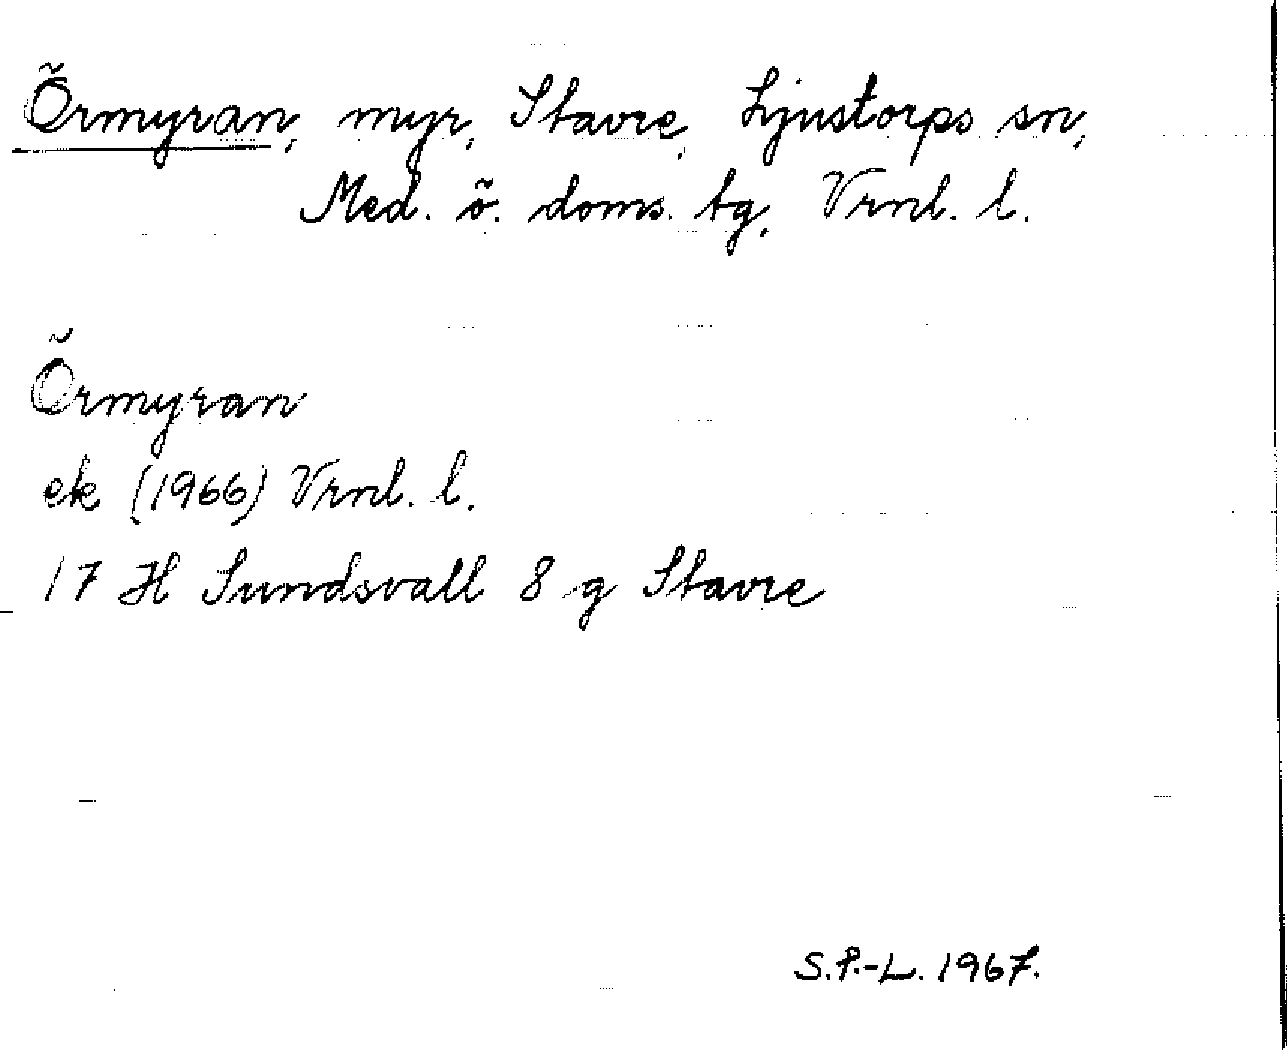 Örmyran, myr, Stavre, Ljustorps sn,
Med. ö. doms. tg, Vrnl. l.
Örmyran
ek (1966) Vrnl. l.
17 H Sundsvall 8 g Stavre
S.P.-L. 1967.